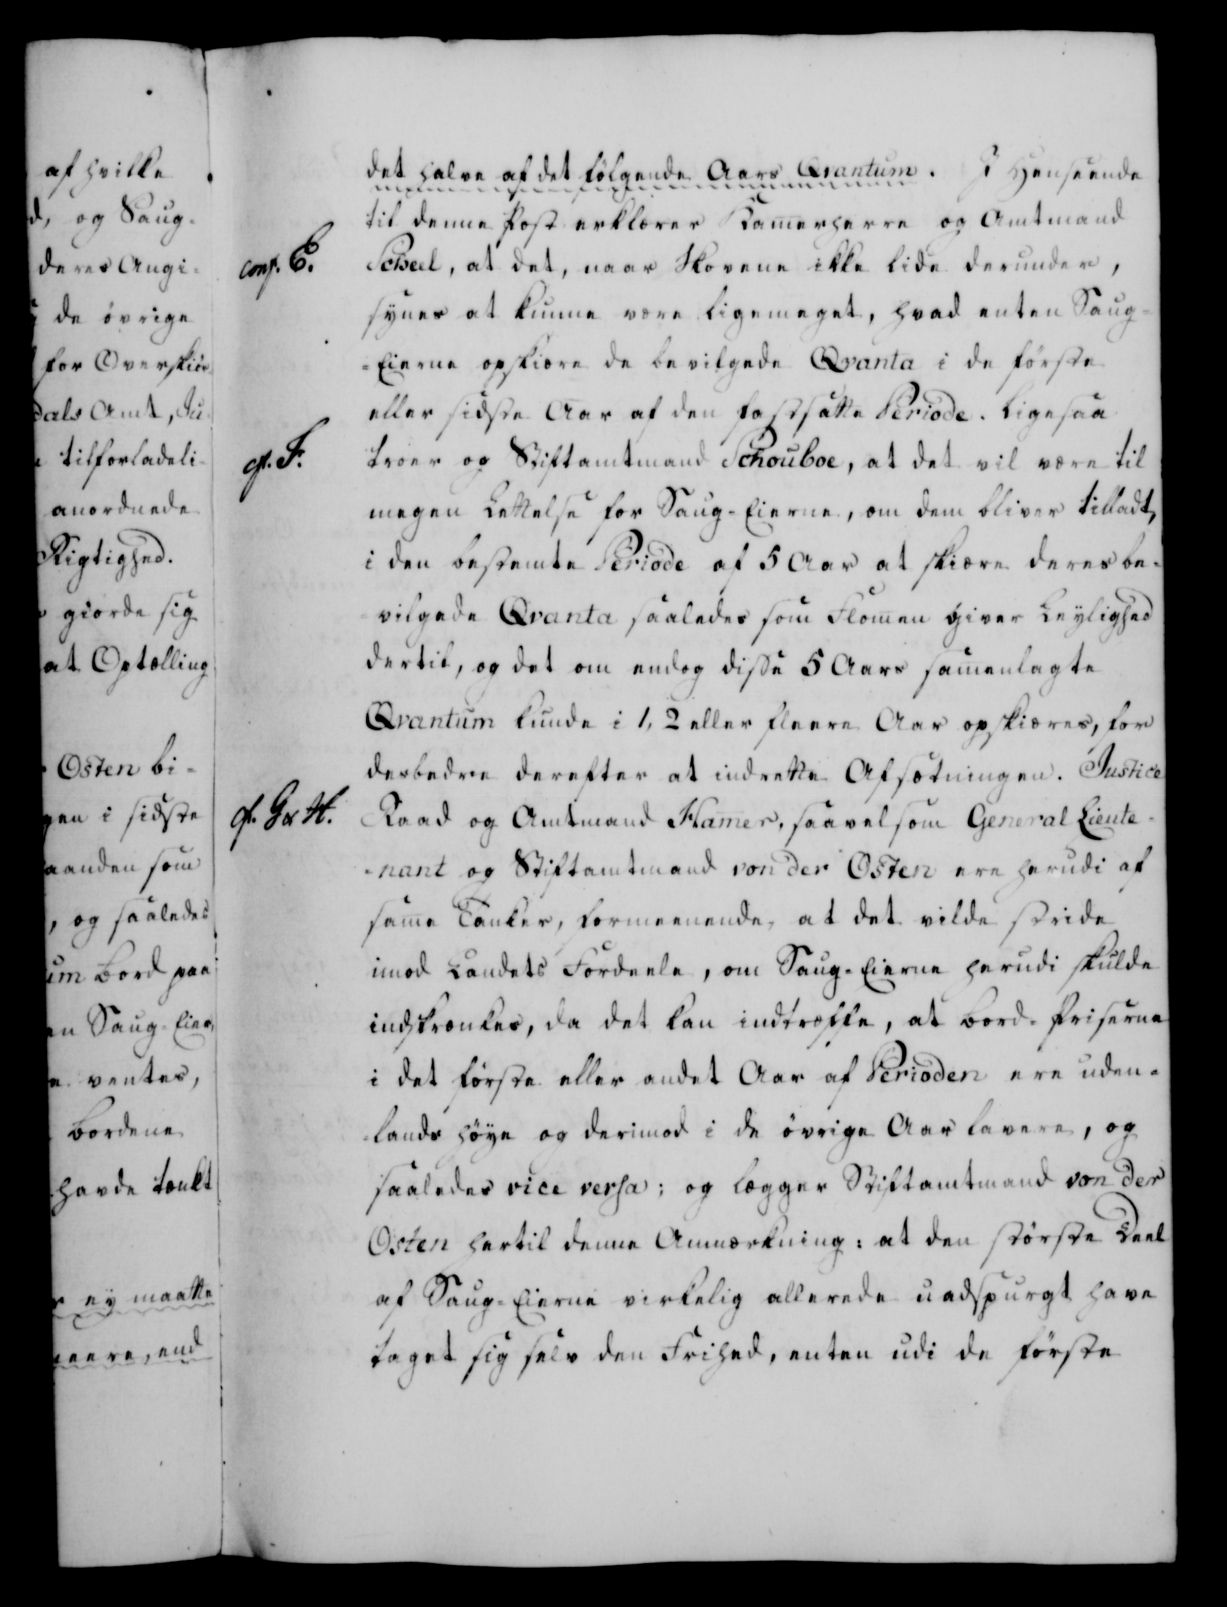 af hvilke
d, og Saug-
deres Angi-
de øvrige
for Overskiør
dals Amt, Ju-
tilforladeli-
anordnede
Rigtighed.
giorde sig
at Optælling
Osten bi-
gen i sidste
aanden som
, og saaledes
um Bord paa
en Saug-Eier
e ventes,
Bordene
havde tænkt
ey maatte
meere, end
det halve af det følgende Aars Qvantum. I Henseende
til denne Post erklærer Kamerherre og Amtmand
conf. E.
Scheel, at det, naar Skovene ikke lide derunder,
synes at kunne være ligemeget, hvad enten Saug-
-Eierne opskiære de bevilgede Qvanta i de første
eller sidste Aar af den fastsatte Periode. Ligesaa
cf. F.
troer og Stiftamtmand Schouboe, at det vil være til
megen Lettelse for Saug-Eierne, om dem bliver tilladt,
i den bestemte Periode af 5 Aar at skiære deres be-
vilgede Qvanta saaledes som Flommen giver Leylighed
dertil, og det om endog disse 5 Aars samenlagte
Qvantum kunde i 1, 2 eller fleere Aar opskiæres, for
desbedre derefter at indrette Afsætningen. Justice
cf. G & H.
Raad og Amtmand Hamer, saavelsom General Lieute-
-nant og Stiftamtmand von der Osten ere herudi af
samme Tanker, formeenende, at det vilde stride
imod Landets Fordeele, om Saug-Eierne herudi skulde
indskrænkes, da det kan indtræffe, at Bord-Priserne
i det første eller andet Aar af Perioden ere uden-
-lands høye og derimod i de øvrige Aar lavere, og
saaledes vice versa; og lægger Stiftamtmand von der
Osten hertil denne Anmærkning: at den største Deel
af Saug-Eierne virkelig allerede uadspurgt have
taget sig selv den Frihed, enten udi de første